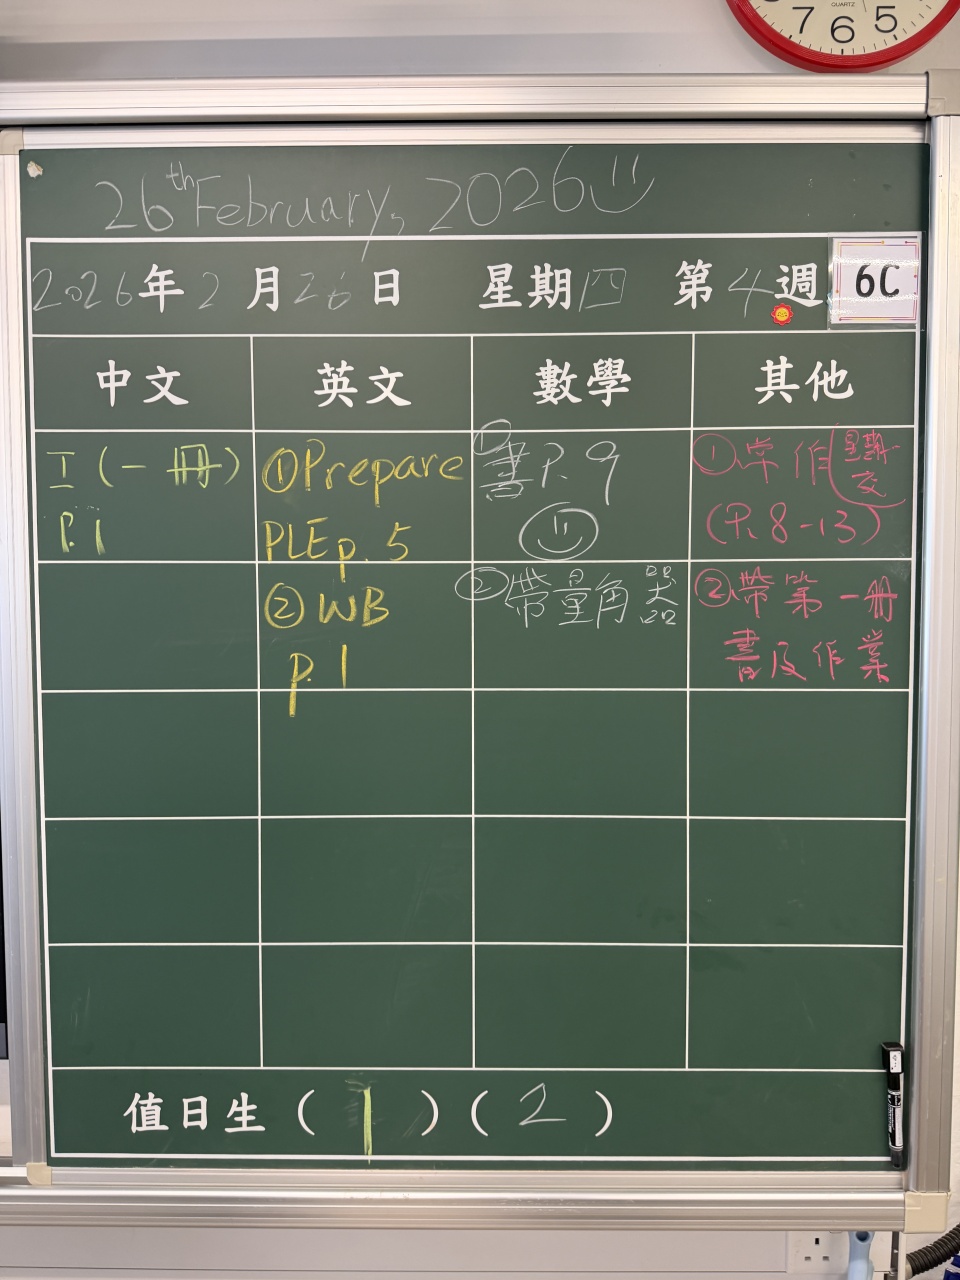 QUARTZ
7 6 5
26th February, 2026
2026年2月26日 星期四 第4週 6C
中文 英文 數學 其他
工(一冊)
P.1
①Prepare
PLE p. 5
② WB
p. 1
①書P.9
②帶量角器
①常作(星期一交)
(P.8-13)
②帶第一冊
書及作業
值日生(1)(2)